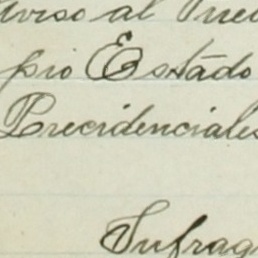 aviso al Puebl
pio Estado
Precidenciales
Sufrag